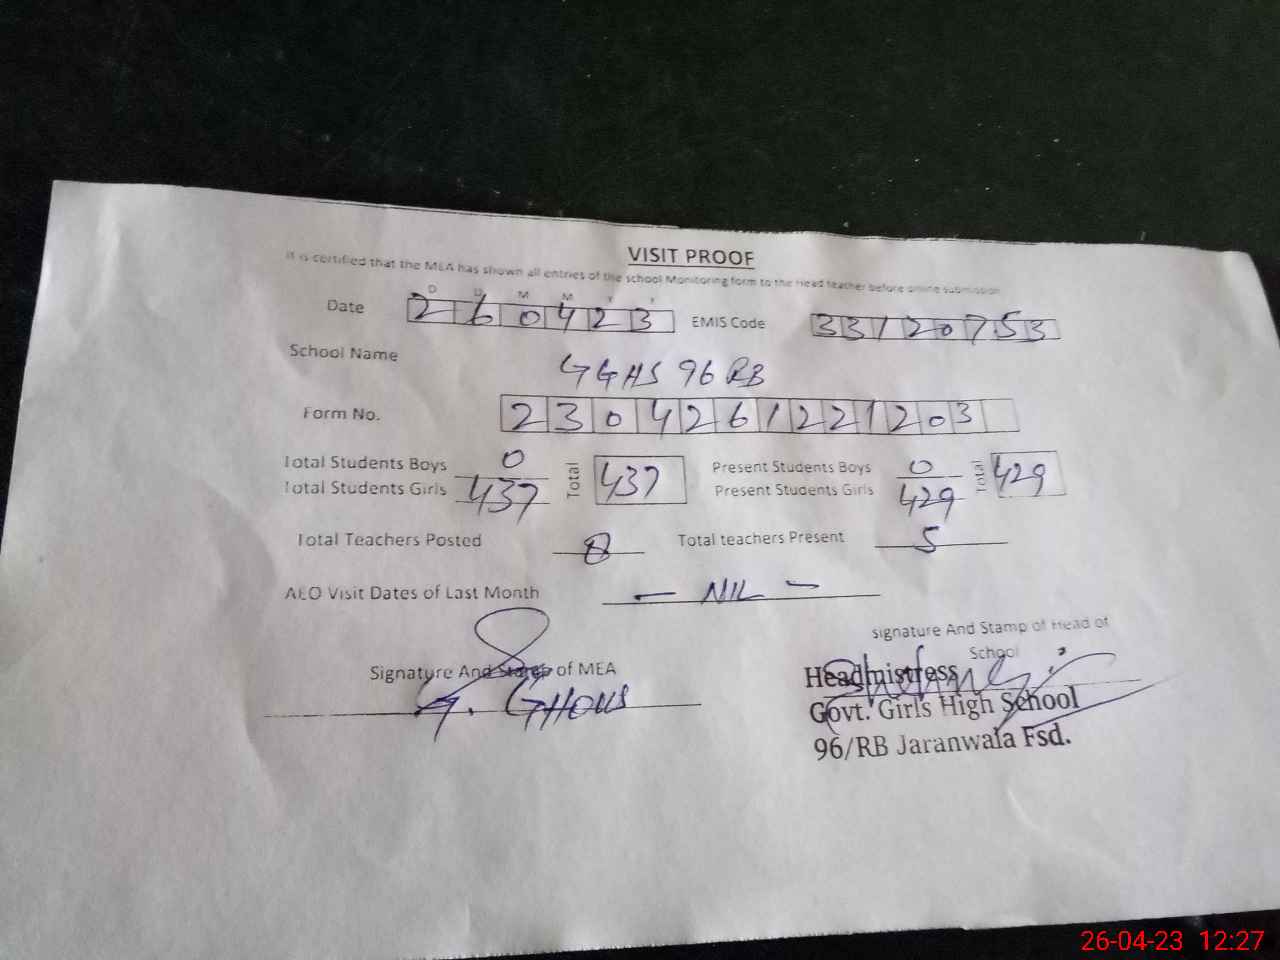 VISIT PROOF
It is certified that the MEA has shown all entries of the school Monitoring form to the Head teacher before online submission
D D M M Y Y
Date 260423 EMIS Code 33120753
School Name GGHS 96 RB
Form No. 2304261221203
Total Students Boys 0 Total 437 Present Students Boys 0 Total 429
Total Students Girls 437 Present Students Girls 429
Total Teachers Posted 8 Total teachers Present 5
AEO Visit Dates of Last Month — NIL —
Signature And Stamp of Head of
School
Signature And Stamp of MEA
G. GHOUS
Headmistress
Govt. Girls High School
96/RB Jaranwala Fsd.
26-04-23 12:27